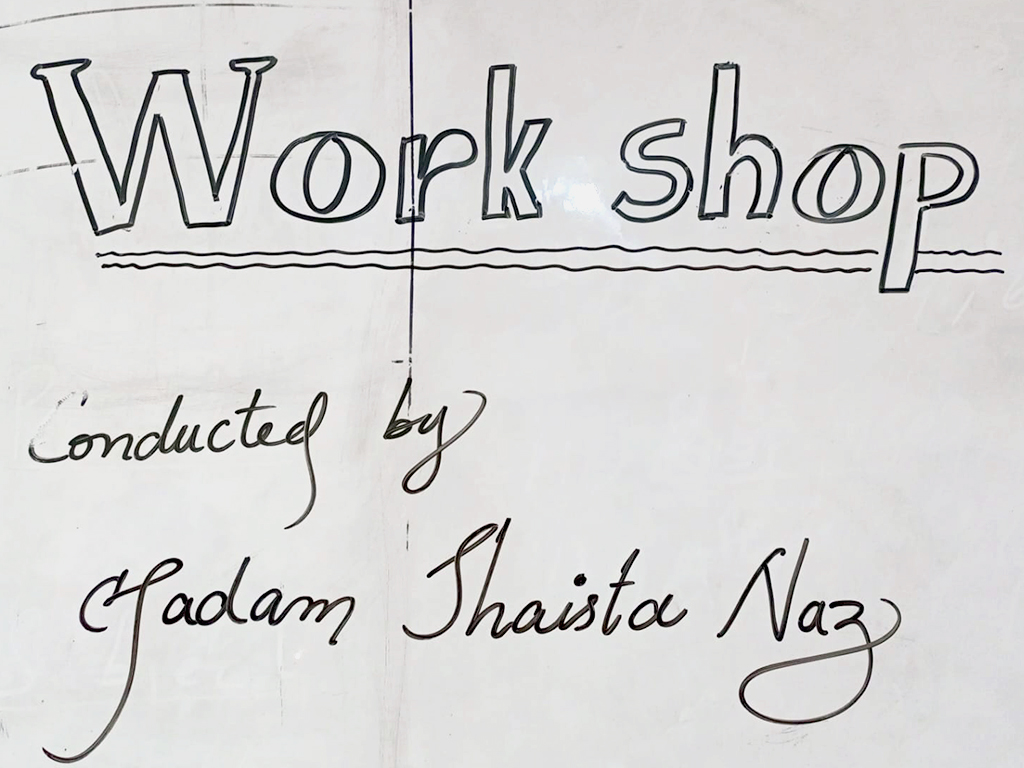 Work shop
Conducted by
Madam Shaista Naz